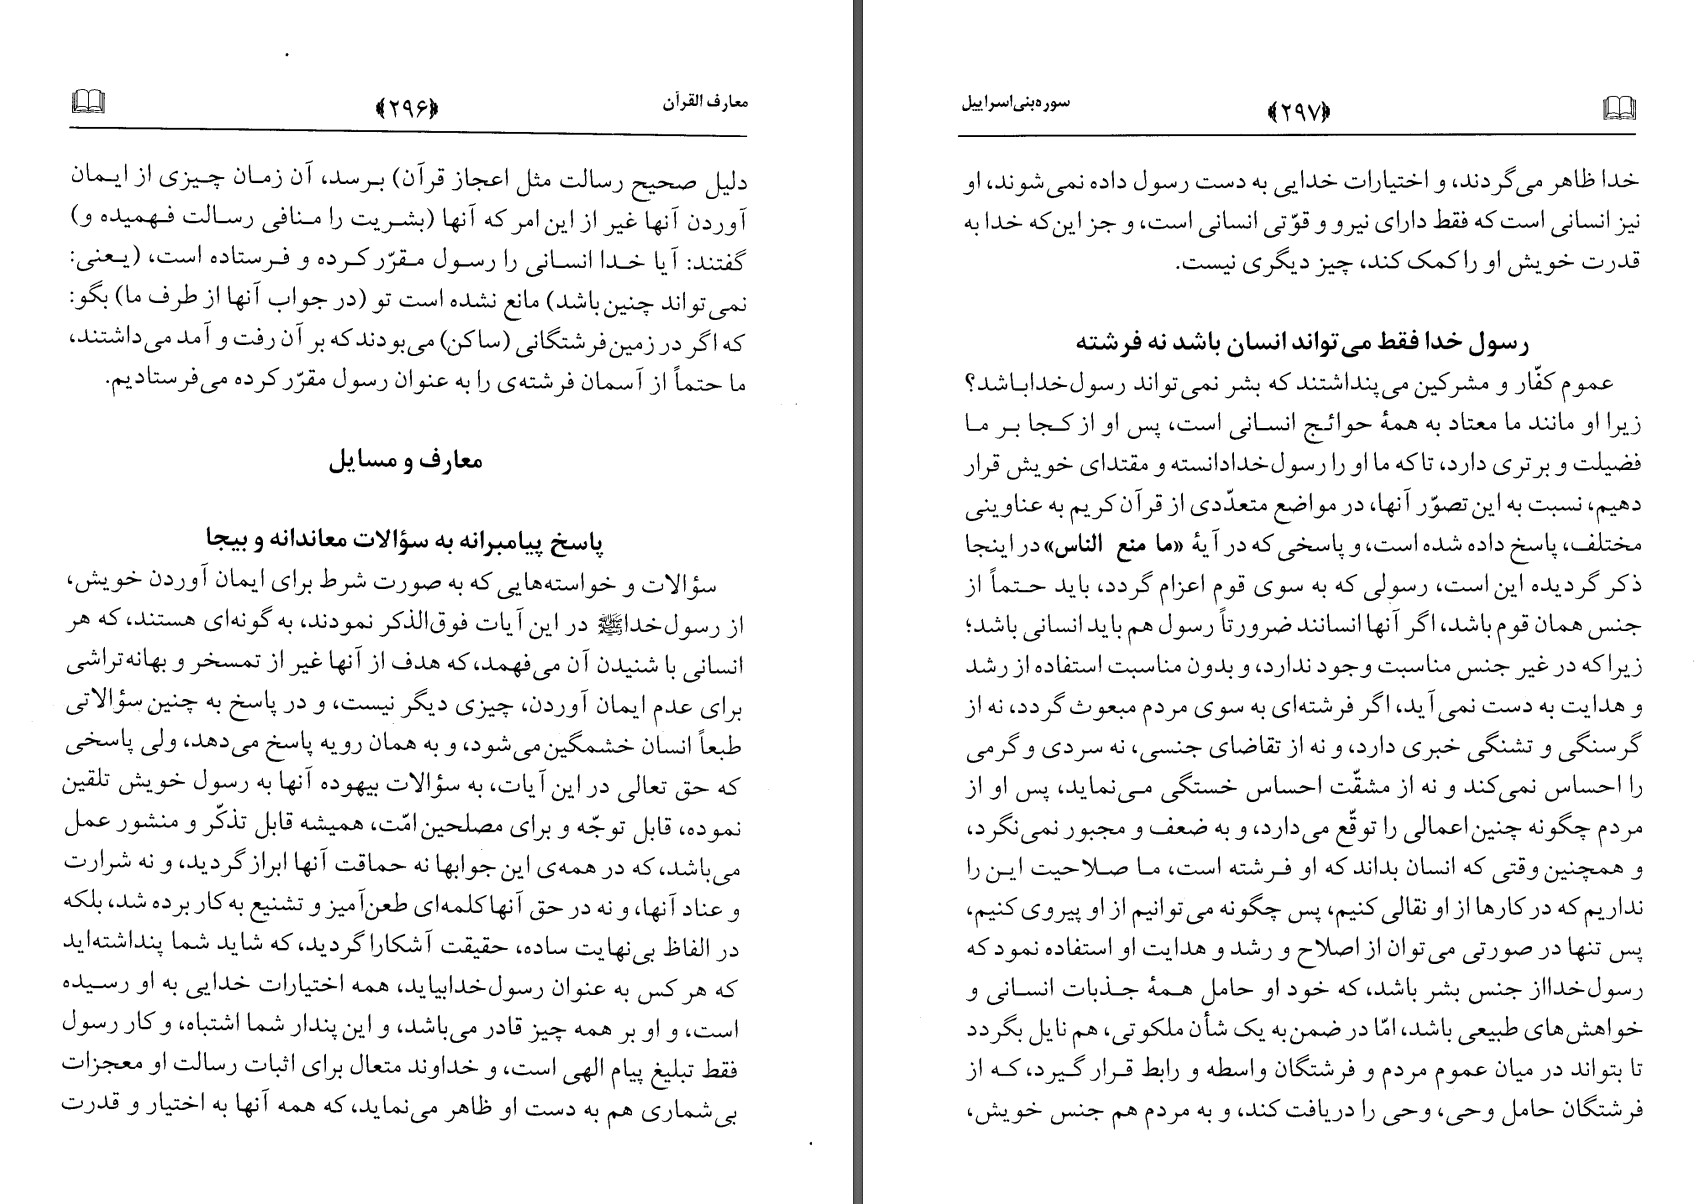 معارف القرآن
﴿۲۹۶﴾
دلیل صحیح رسالت مثل اعجاز قرآن) برسد، آن زمان چیزی از ایمان
آوردن آنها غیر از این امر که آنها (بشریت را منافی رسالت فهمیده و)
گفتند: آیا خدا انسانی را رسول مقرّر کرده و فرستاده است، (یعنی:
نمی‌تواند چنین باشد) مانع نشده است تو (در جواب آنها از طرف ما) بگو:
که اگر در زمین فرشتگانی (ساکن) می‌بودند که بر آن رفت و آمد می‌داشتند،
ما حتماً از آسمان فرشته‌ی را به عنوان رسول مقرّر کرده می‌فرستادیم.
معارف و مسایل
پاسخ پیامبرانه به سؤالات معاندانه و بیجا
سؤالات و خواسته‌هایی که به صورت شرط برای ایمان آوردن خویش،
از رسول خداﷺ در این آیات فوق‌الذکر نمودند، به گونه‌ای هستند، که هر
انسانی با شنیدن آن می‌فهمد، که هدف از آنها غیر از تمسخر و بهانه‌تراشی
برای عدم ایمان آوردن، چیزی دیگر نیست، و در پاسخ به چنین سؤالاتی
طبعاً انسان خشمگین می‌شود، و به همان رویه پاسخ می‌دهد، ولی پاسخی
که حق تعالی در این آیات، به سؤالات بیهوده آنها به رسول خویش تلقین
نموده، قابل توجّه و برای مصلحین امّت، همیشه قابل تذکّر و منشور عمل
می‌باشد، که در همه‌ی این جوابها نه حماقت آنها ابراز گردید، و نه شرارت
و عناد آنها، و نه در حق آنها کلمه‌ای طعن‌آمیز و تشنیع به کار برده شد، بلکه
در الفاظ بی‌نهایت ساده، حقیقت آشکارا گردید، که شاید شما پنداشته‌اید
که هر کس به عنوان رسول خدا بیاید، همه اختیارات خدایی به او رسیده
است، و او بر همه چیز قادر می‌باشد، و این پندار شما اشتباه، و کار رسول
فقط تبلیغ پیام الهی است، و خداوند متعال برای اثبات رسالت او معجزات
بی‌شماری هم به دست او ظاهر می‌نماید، که همه آنها به اختیار و قدرت
سوره بنی‌اسراییل
﴿۲۹۷﴾
خدا ظاهر می‌گردند، و اختیارات خدایی به دست رسول داده نمی‌شوند، او
نیز انسانی است که فقط دارای نیرو و قوّتی انسانی است، و جز این‌که خدا به
قدرت خویش او را کمک کند، چیز دیگری نیست.
رسول خدا فقط می‌تواند انسان باشد نه فرشته
عموم کفّار و مشرکین می‌پنداشتند که بشر نمی‌تواند رسول خدا باشد؟
زیرا او مانند ما معتاد به همهٔ حوائج انسانی است، پس او از کجا بر ما
فضیلت و برتری دارد، تا که ما او را رسول خدا دانسته و مقتدای خویش قرار
دهیم، نسبت به این تصوّر آنها، در مواضع متعدّدی از قرآن کریم به عناوینی
مختلف، پاسخ داده شده است، و پاسخی که در آیهٔ «ما منع الناس» در اینجا
ذکر گردیده این است، رسولی که به سوی قوم اعزام گردد، باید حتماً از
جنس همان قوم باشد، اگر آنها انسانند ضرورتاً رسول هم باید انسانی باشد؛
زیرا که در غیر جنس مناسبت وجود ندارد، و بدون مناسبت استفاده از رشد
و هدایت به دست نمی‌آید، اگر فرشته‌ای به سوی مردم مبعوث گردد، نه از
گرسنگی و تشنگی خبری دارد، و نه از تقاضای جنسی، نه سردی و گرمی
را احساس نمی‌کند و نه از مشقّت احساس خستگی می‌نماید، پس او از
مردم چگونه چنین اعمالی را توقّع می‌دارد، و به ضعف و مجبور نمی‌نگرد،
و همچنین وقتی که انسان بداند که او فرشته است، ما صلاحیت این را
نداریم که در کارها از او نقالی کنیم، پس چگونه می‌توانیم از او پیروی کنیم،
پس تنها در صورتی می‌توان از اصلاح و رشد و هدایت او استفاده نمود که
رسول خدا از جنس بشر باشد، که خود او حامل همهٔ جذبات انسانی و
خواهش‌های طبیعی باشد، امّا در ضمن به یک شأن ملکوتی، هم نایل بگردد
تا بتواند در میان عموم مردم و فرشتگان واسطه و رابط قرار گیرد، که از
فرشتگان حامل وحی، وحی را دریافت کند، و به مردم هم جنس خویش،